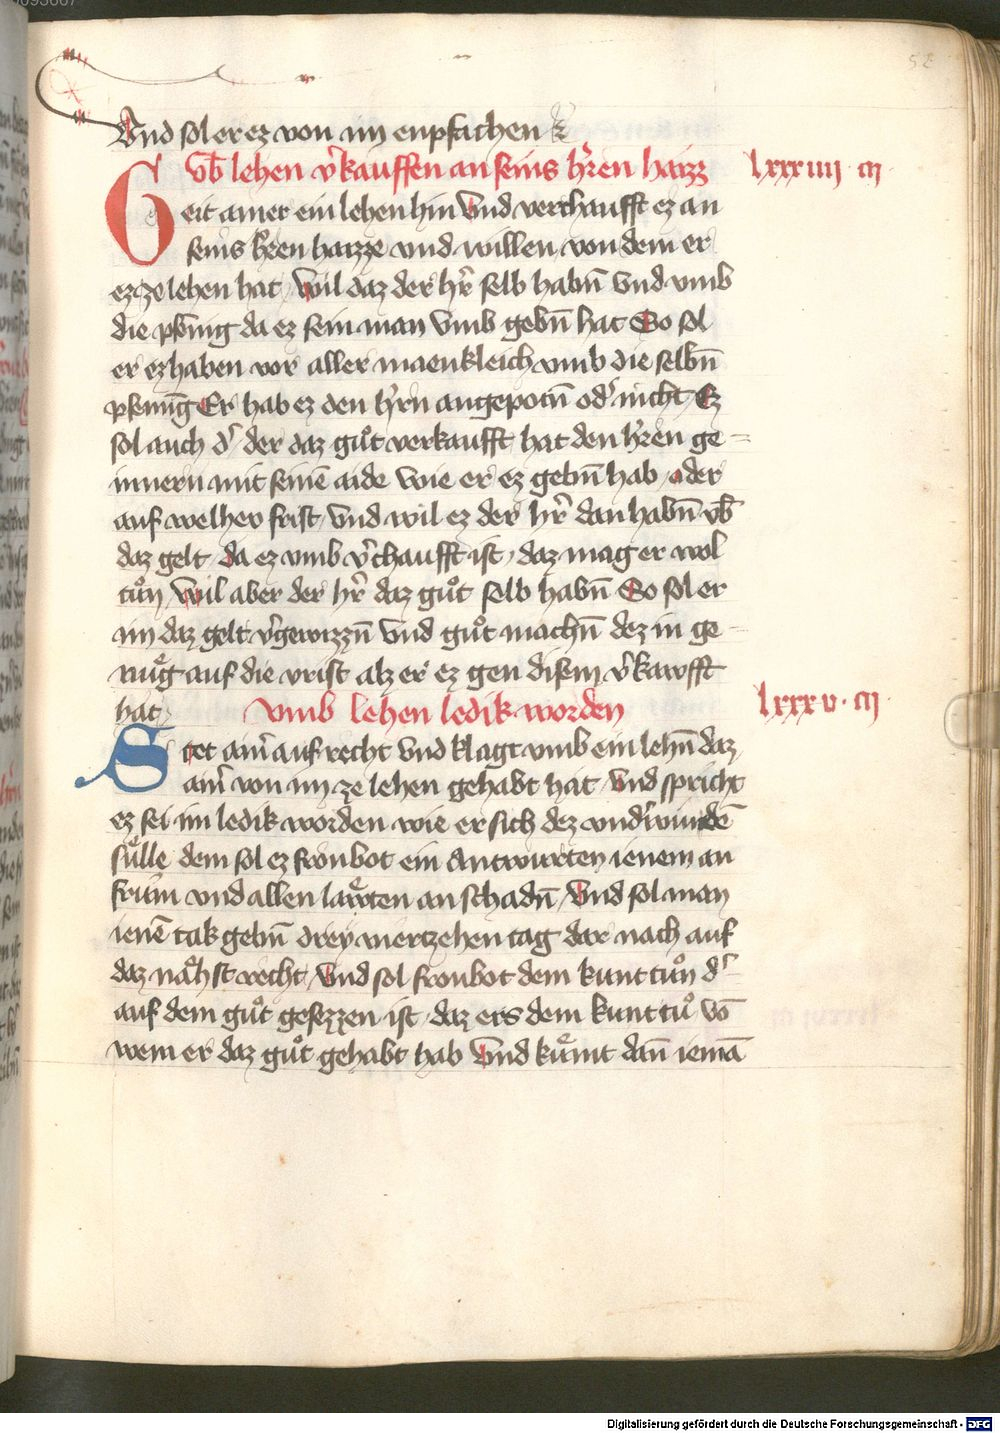 52
Vnd sol er ez von im enpfachen
Vb̄ lehen v̓kauffen an seins hr̓en haizz lxxxiiij · cij
Geit ainer ein lehen hin Vnd verchaufft ez an
seins hr̓en haizze vnd willen von dem er
ez ze lehen hat Wil daz der hr̓ selb habn̄ Vnd vmb
die pfennig da ez sein man Vmb gebn̄ hat So sol
er ez haben vor aller maenkleich vmb die selbn̄
pfennīg Er hab ez den hr̓rn angepotn̄ od̓ nicht Ez
sol auch d̓ der daz guͦt verkaufft hat den hr̓en ge=
innern mit seinē aide wie er ez gebn̄ hab oder
auf welher frist Vnd wil ez der hr̓ dan habn̄ vb̄
daz gelt da ez vmb v̓chaufft ist daz mag er wol
tuͦn Wil aber der hr̓ daz guͦt selb habn̄ So sol er
im daz gelt v̓gewizzn̄ Vnd guͦt machn̄ dez in ge-
nuͤg auf die vrist alz er ez gen disem v̓kawfft
hat Vmb lehen ledik worden lxxxv · cij
Stet ain̓ auf recht Vnd klagt vmb ein lehn̄ daz
ain̓ von im ze lehen gehabt hat Vnd spricht
ez sei im ledik worden wie er sich dez vnd̓winden̄
suͤlle dem sol ez fronbot ein Antwurten ienem an
frum vnd allen laͤwten an schadn̄ Vnd sol man
ienē tak gebn̄ drey viertzehen tag dar nach auf
daz naͤhst recht Vnd sol fronbot dem kunt tuͦn d̓
auf dem guͦt gesezzen ist daz ers dem kunt tuͦ Vō
wem er daz guͦt gehabt hab Vnd kuͤmt dan̄ iemā
Digitalisierung gefördert durch die Deutsche Forschungsgemeinschaft - DFG